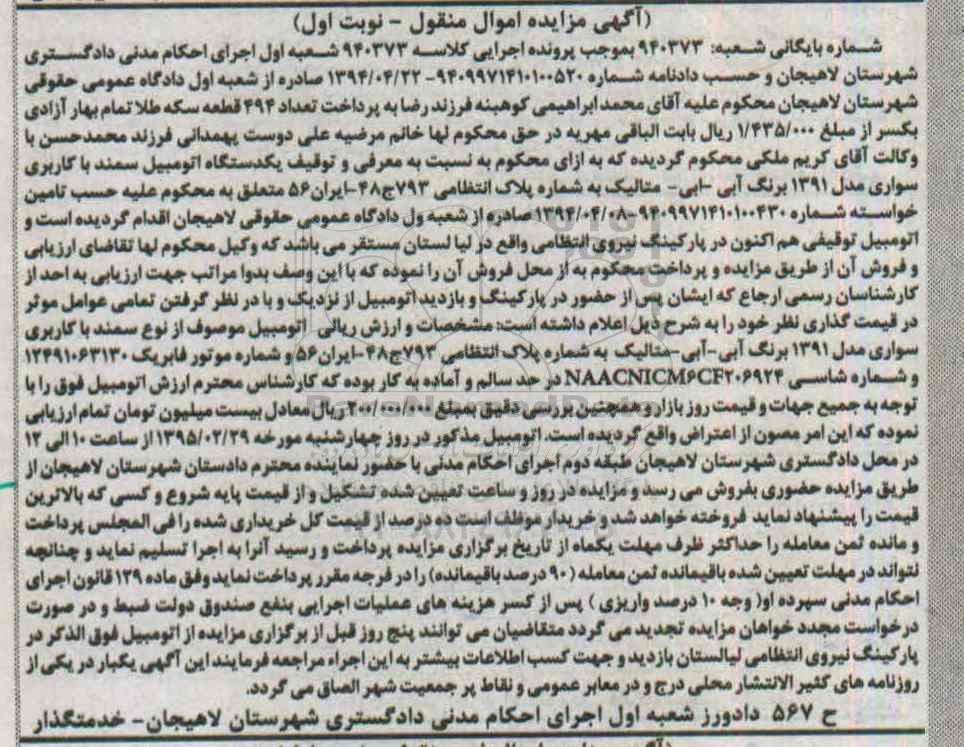 (آگهی مزایده اموال منقول - نوبت اول)
شماره بایگانی شعبه: ۹۴۰۳۷۳ بموجب پرونده اجرایی کلاسه ۹۴۰۳۷۳ شعبه اول اجرای احکام مدنی دادگستری
شهرستان لاهیجان و حسب دادنامه شماره ۹۴۰۹۹۷۱۴۱۰۱۰۰۵۲۰- ۱۳۹۴/۰۴/۲۲ صادره از شعبه اول دادگاه عمومی حقوقی
شهرستان لاهیجان محکوم علیه آقای محمد ابراهیمی کوهبنه فرزند رضا به پرداخت تعداد ۴۹۴ قطعه سکه طلا تمام بهار آزادی
بکسر از مبلغ ۱/۴۳۵/۰۰۰ ریال بابت الباقی مهریه در حق محکوم لها خانم مرضیه علی دوست پهمدانی فرزند محمدحسن با
وکالت آقای کریم ملکی محکوم گردیده که به ازای محکوم به نسبت به معرفی و توقیف یکدستگاه اتومبیل سمند با کاربری
سواری مدل ۱۳۹۱ برنگ آبی -ابی- متالیک به شماره پلاک انتظامی ۷۹۳ج۴۸-ایران۵۶ متعلق به محکوم علیه حسب تامین
خواسته شماره ۹۴۰۹۹۷۱۴۱۰۱۰۰۴۳۰-۱۳۹۴/۰۴/۰۸ صادره از شعبه ول دادگاه عمومی حقوقی لاهیجان اقدام گردیده است و
اتومبیل توقیفی هم اکنون در پارکینگ نیروی انتظامی واقع در لیا لستان مستقر می باشد که وکیل محکوم لها تقاضای ارزیابی
و فروش آن از طریق مزایده و پرداخت محکوم به از محل فروش آن را نموده که با این وصف بدوا مراتب جهت ارزیابی به احد از
کارشناسان رسمی ارجاع که ایشان پس از حضور در پارکینگ و بازدید اتومبیل از نزدیک و با در نظر گرفتن تمامی عوامل موثر
در قیمت گذاری نظر خود را به شرح ذیل اعلام داشته است: مشخصات و ارزش ریالی اتومبیل موصوف از نوع سمند با کاربری
سواری مدل ۱۳۹۱ برنگ آبی-آبی-متالیک به شماره پلاک انتظامی ۷۹۳ج۴۸-ایران۵۶ و شماره موتور فابریک ۱۲۴۹۱۰۶۳۱۳۰
و شماره شاسی NAACNICM۶CF۲۰۶۹۲۴ در حد سالم و آماده به کار بوده که کارشناس محترم ارزش اتومبیل فوق را با
توجه به جمیع جهات و قیمت روز بازار و همچنین بررسی دقیق بمبلغ ۲۰۰/۰۰۰/۰۰۰ ریال معادل بیست میلیون تومان تمام ارزیابی
نموده که این امر مصون از اعتراض واقع گردیده است. اتومبیل مذکور در روز چهارشنبه مورخه ۱۳۹۵/۰۲/۲۹ از ساعت ۱۰ الی ۱۲
در محل دادگستری شهرستان لاهیجان طبقه دوم اجرای احکام مدنی با حضور نماینده محترم دادستان شهرستان لاهیجان از
طریق مزایده حضوری بفروش می رسد و مزایده در روز و ساعت تعیین شده تشکیل و از قیمت پایه شروع و کسی که بالاترین
قیمت را پیشنهاد نماید فروخته خواهد شد و خریدار موظف است ده درصد از قیمت کل خریداری شده را فی المجلس پرداخت
و مانده ثمن معامله را حداکثر ظرف مهلت یکماه از تاریخ برگزاری مزایده پرداخت و رسید آنرا به اجرا تسلیم نماید و چنانچه
نتواند در مهلت تعیین شده باقیمانده ثمن معامله (۹۰ درصد باقیمانده) را در فرجه مقرر پرداخت نماید وفق ماده ۱۲۹ قانون اجرای
احکام مدنی سپرده او( وجه ۱۰ درصد واریزی ) پس از کسر هزینه های عملیات اجرایی بنفع صندوق دولت ضبط و در صورت
درخواست مجدد خواهان مزایده تجدید می گردد متقاضیان می توانند پنج روز قبل از برگزاری مزایده از اتومبیل فوق الذکر در
پارکینگ نیروی انتظامی لیالستان بازدید و جهت کسب اطلاعات بیشتر به این اجراء مراجعه فرمایند این آگهی یکبار در یکی از
روزنامه های کثیر الانتشار محلی درج و در معابر عمومی و نقاط پر جمعیت شهر الصاق می گردد.
ح ۵۶۷ دادورز شعبه اول اجرای احکام مدنی دادگستری شهرستان لاهیجان- خدمتگذار